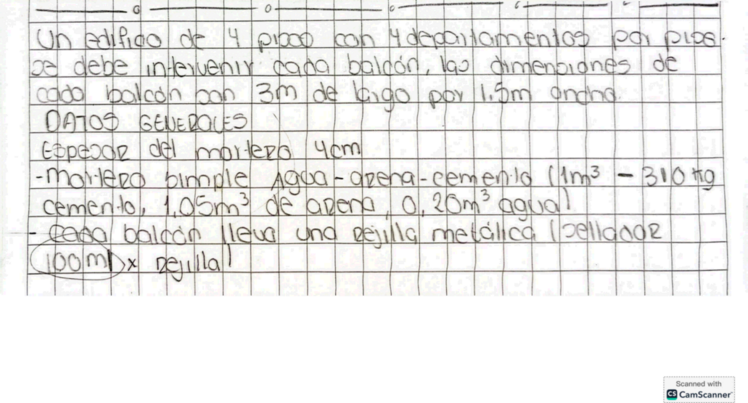 Un edificio de 4 pisos con 4 departamentos por piso.
se debe intervenir cada balcón, las dimensiones de
cada balcón son 3m de largo por 1,5m ancho.
DATOS GENERALES
Espesor del mortero 4cm
-mortero simple Agua-arena-cemento (1m³ - 310 kg
cemento, 1,05m³ de arena, 0,20m³ agua)
- Cada balcón lleva una rejilla metálica (sellador
100ml x rejilla)
Scanned with
CS CamScanner